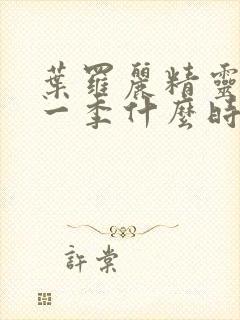 葉羅麗精靈
一季什麼時
許棠